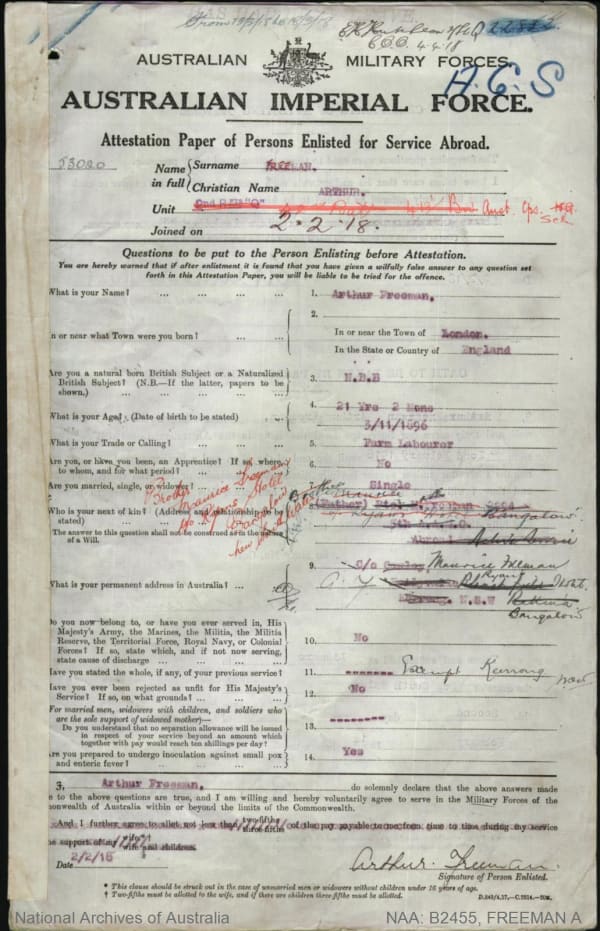 From 13/2/18 to
4.4.18
AUSTRALIAN MILITARY FORCES.
A.G.S
AUSTRALIAN IMPERIAL FORCE.
Attestation Paper of Persons Enlisted for Service Abroad.
53020
Name in full
Surname FREEMAN.
Christian Name ARTHUR.
Unit Aust. Cps. Sch.
Joined on 2.2.18.
Questions to be put to the Person Enlisting before Attestation.
You are hereby warned that if after enlistment it is found that you have given a wilfully false answer to any question set
forth in this Attestation Paper, you will be liable to be tried for the offence.
What is your Name? ... ... ... 1. Arthur Freeman.
2.
In or near what Town were you born? ... ... In or near the Town of London.
In the State or Country of England
Are you a natural born British Subject or a Naturalized
British Subject? (N.B.—If the latter, papers to be
shown.) ... ... ... 3. N.B.B
What is your Age? (Date of birth to be stated) ... 4. 21 Yrs 2 Mons
3/11/1896
What is your Trade or Calling? ... ... ... 5. Farm Labourer
Are you, or have you been, an Apprentice? If so, where,
to whom, and for what period? ... ... 6. No
Are you married, single, or widower? ... ... Single
Brother
Maurice Freeman
c/o Ryans Hotel
Bangalow
New Sth Wales
Who is your next of kin? (Address and relationship to be
stated) ... ... ... (Father)
Bangalow
The answer to this question shall not be construed as in the nature
of a Will. Abroad
What is your permanent address in Australia? ... 9. C/o Maurice Freeman
Ryans Hotel
N.S.W
Bangalow
Do you now belong to, or have you ever served in, His
Majesty's Army, the Marines, the Militia, the Militia
Reserve, the Territorial Force, Royal Navy, or Colonial
Forces? If so, state which, and if not now serving,
state cause of discharge ... ... ... 10. No
Have you stated the whole, if any, of your previous service? 11. ------- Exempt Kurrong
Have you ever been rejected as unfit for His Majesty's
Service? If so, on what grounds? ... ... 12. No
For married men, widowers with children, and soldiers who
are the sole support of widowed mother—
Do you understand that no separation allowance will be issued
in respect of your service beyond an amount which
together with pay would reach ten shillings per day? 13. --------
Are you prepared to undergo inoculation against small pox
and enteric fever? ... ... ... 14. Yes
3, Arthur Freeman. do solemnly declare that the above answers made
me to the above questions are true, and I am willing and hereby voluntarily agree to serve in the Military Forces of the
Commonwealth of Australia within or beyond the limits of the Commonwealth.
And I further agree to allot not less than two-fifths three-fifths of the pay payable to me from time to time during my service
the support of my wife wife and children.
Date 2/2/18
Arthur. Freeman.
Signature of Person Enlisted.
* This clause should be struck out in the case of unmarried men or widowers without children under 16 years of age.
† Two-fifths must be allotted to the wife, and if there are children three-fifths must be allotted.
National Archives of Australia
NAA: B2455, FREEMAN A